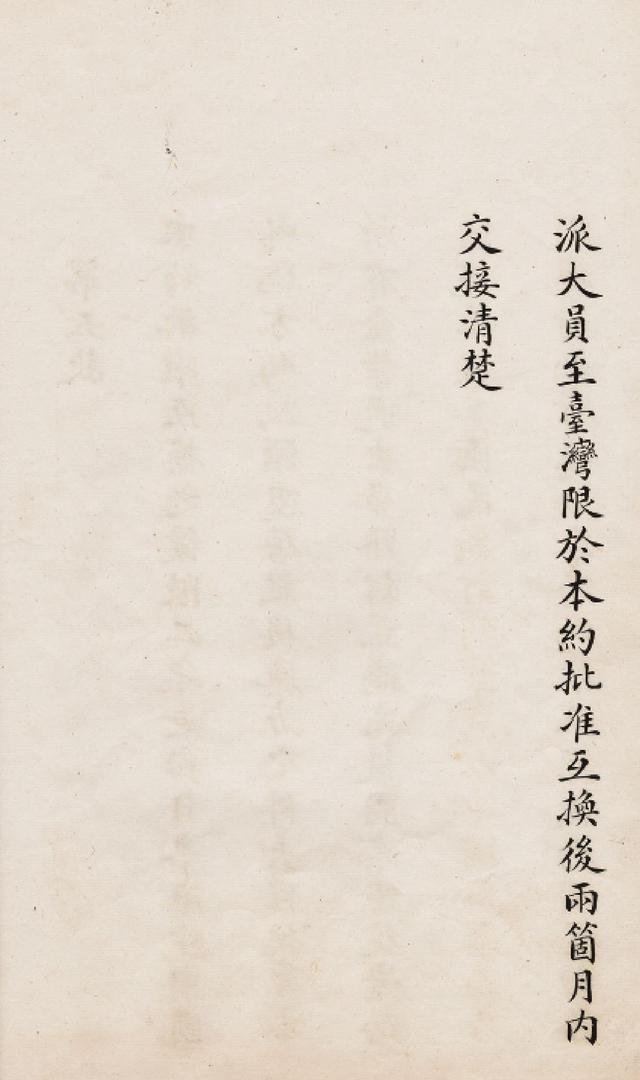 派大員至臺灣限於本約批准互換後兩箇月內
交接清楚